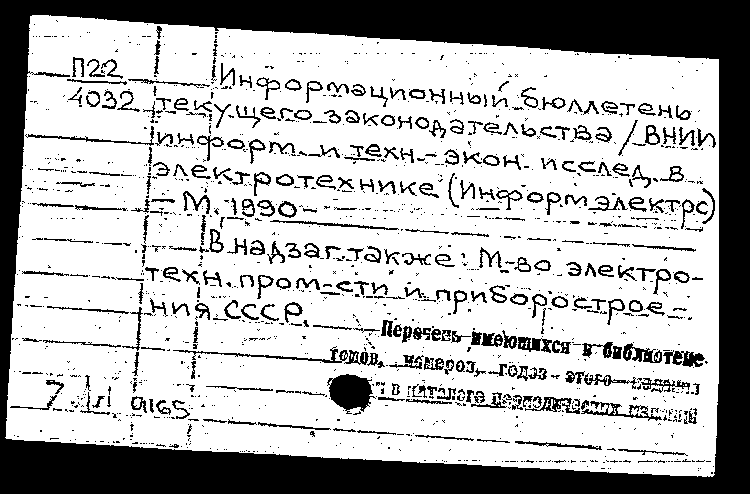 П22
4032
Информационный бюллетень
текущего законодательства / ВНИИ
информ. и техн.-экон. исслед. в
электротехнике (Информэлектро)
— М., 1990 –
В надзаг. также: М-во электро-
техн. пром-сти и приборострое-
ния СССР.
Перечень имеющихся в библиотеке
томов, номеров, годов этого издания
в каталоге периодических изданий
9165